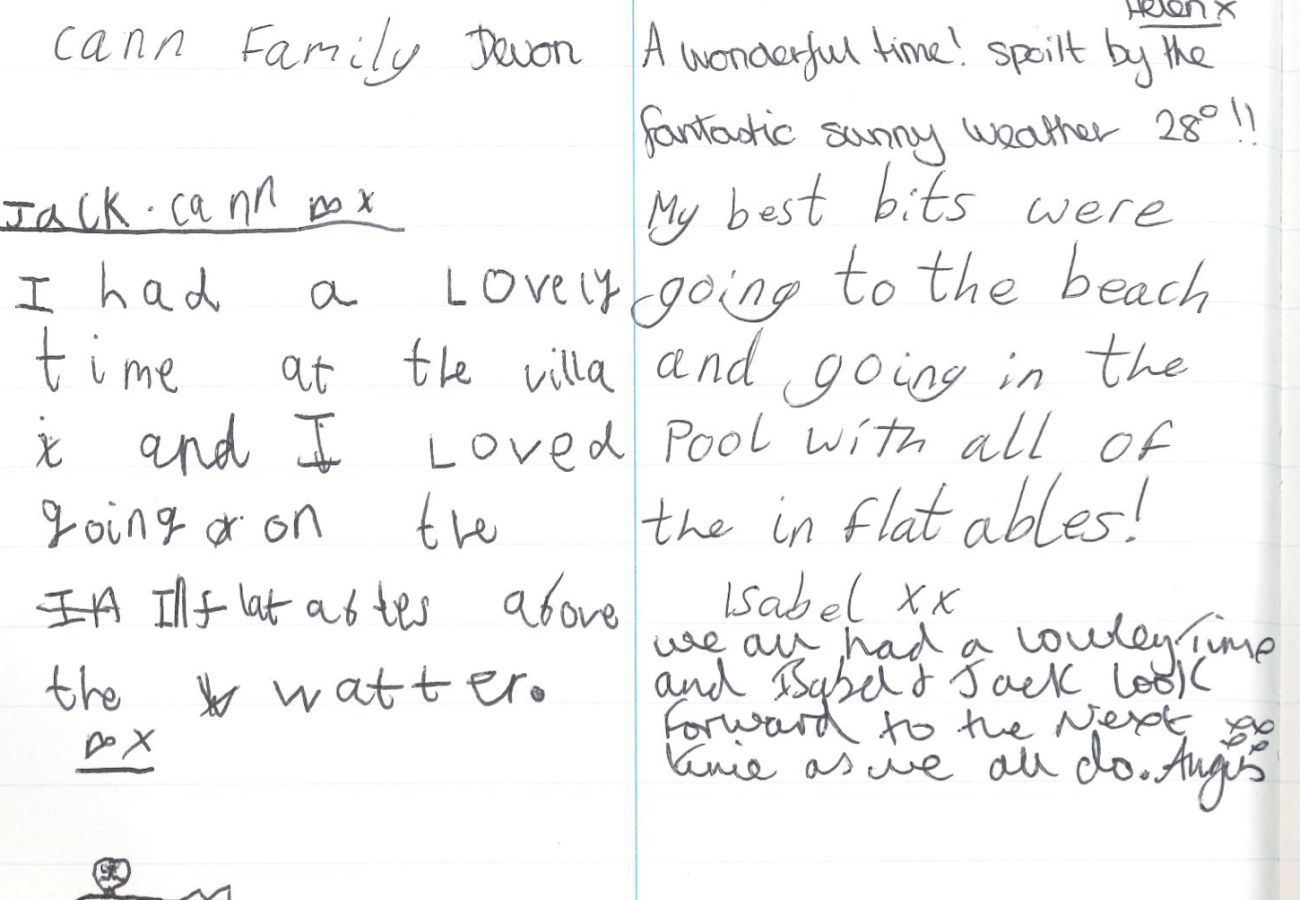 Cann Family Devon
Jack. cann x
I had a Lovely
time at the villa
and I Loved
going on the
Inflatables above
the watter.
x
Helen x
A wonderful time! spoilt by the
fantastic sunny weather 28° !!
My best bits were
going to the beach
and going in the
Pool with all of
the in flat ables!
Isabel xx
we all had a Time
and Isabel & Jack look
forward to the Next xx
time as we all do. Angus